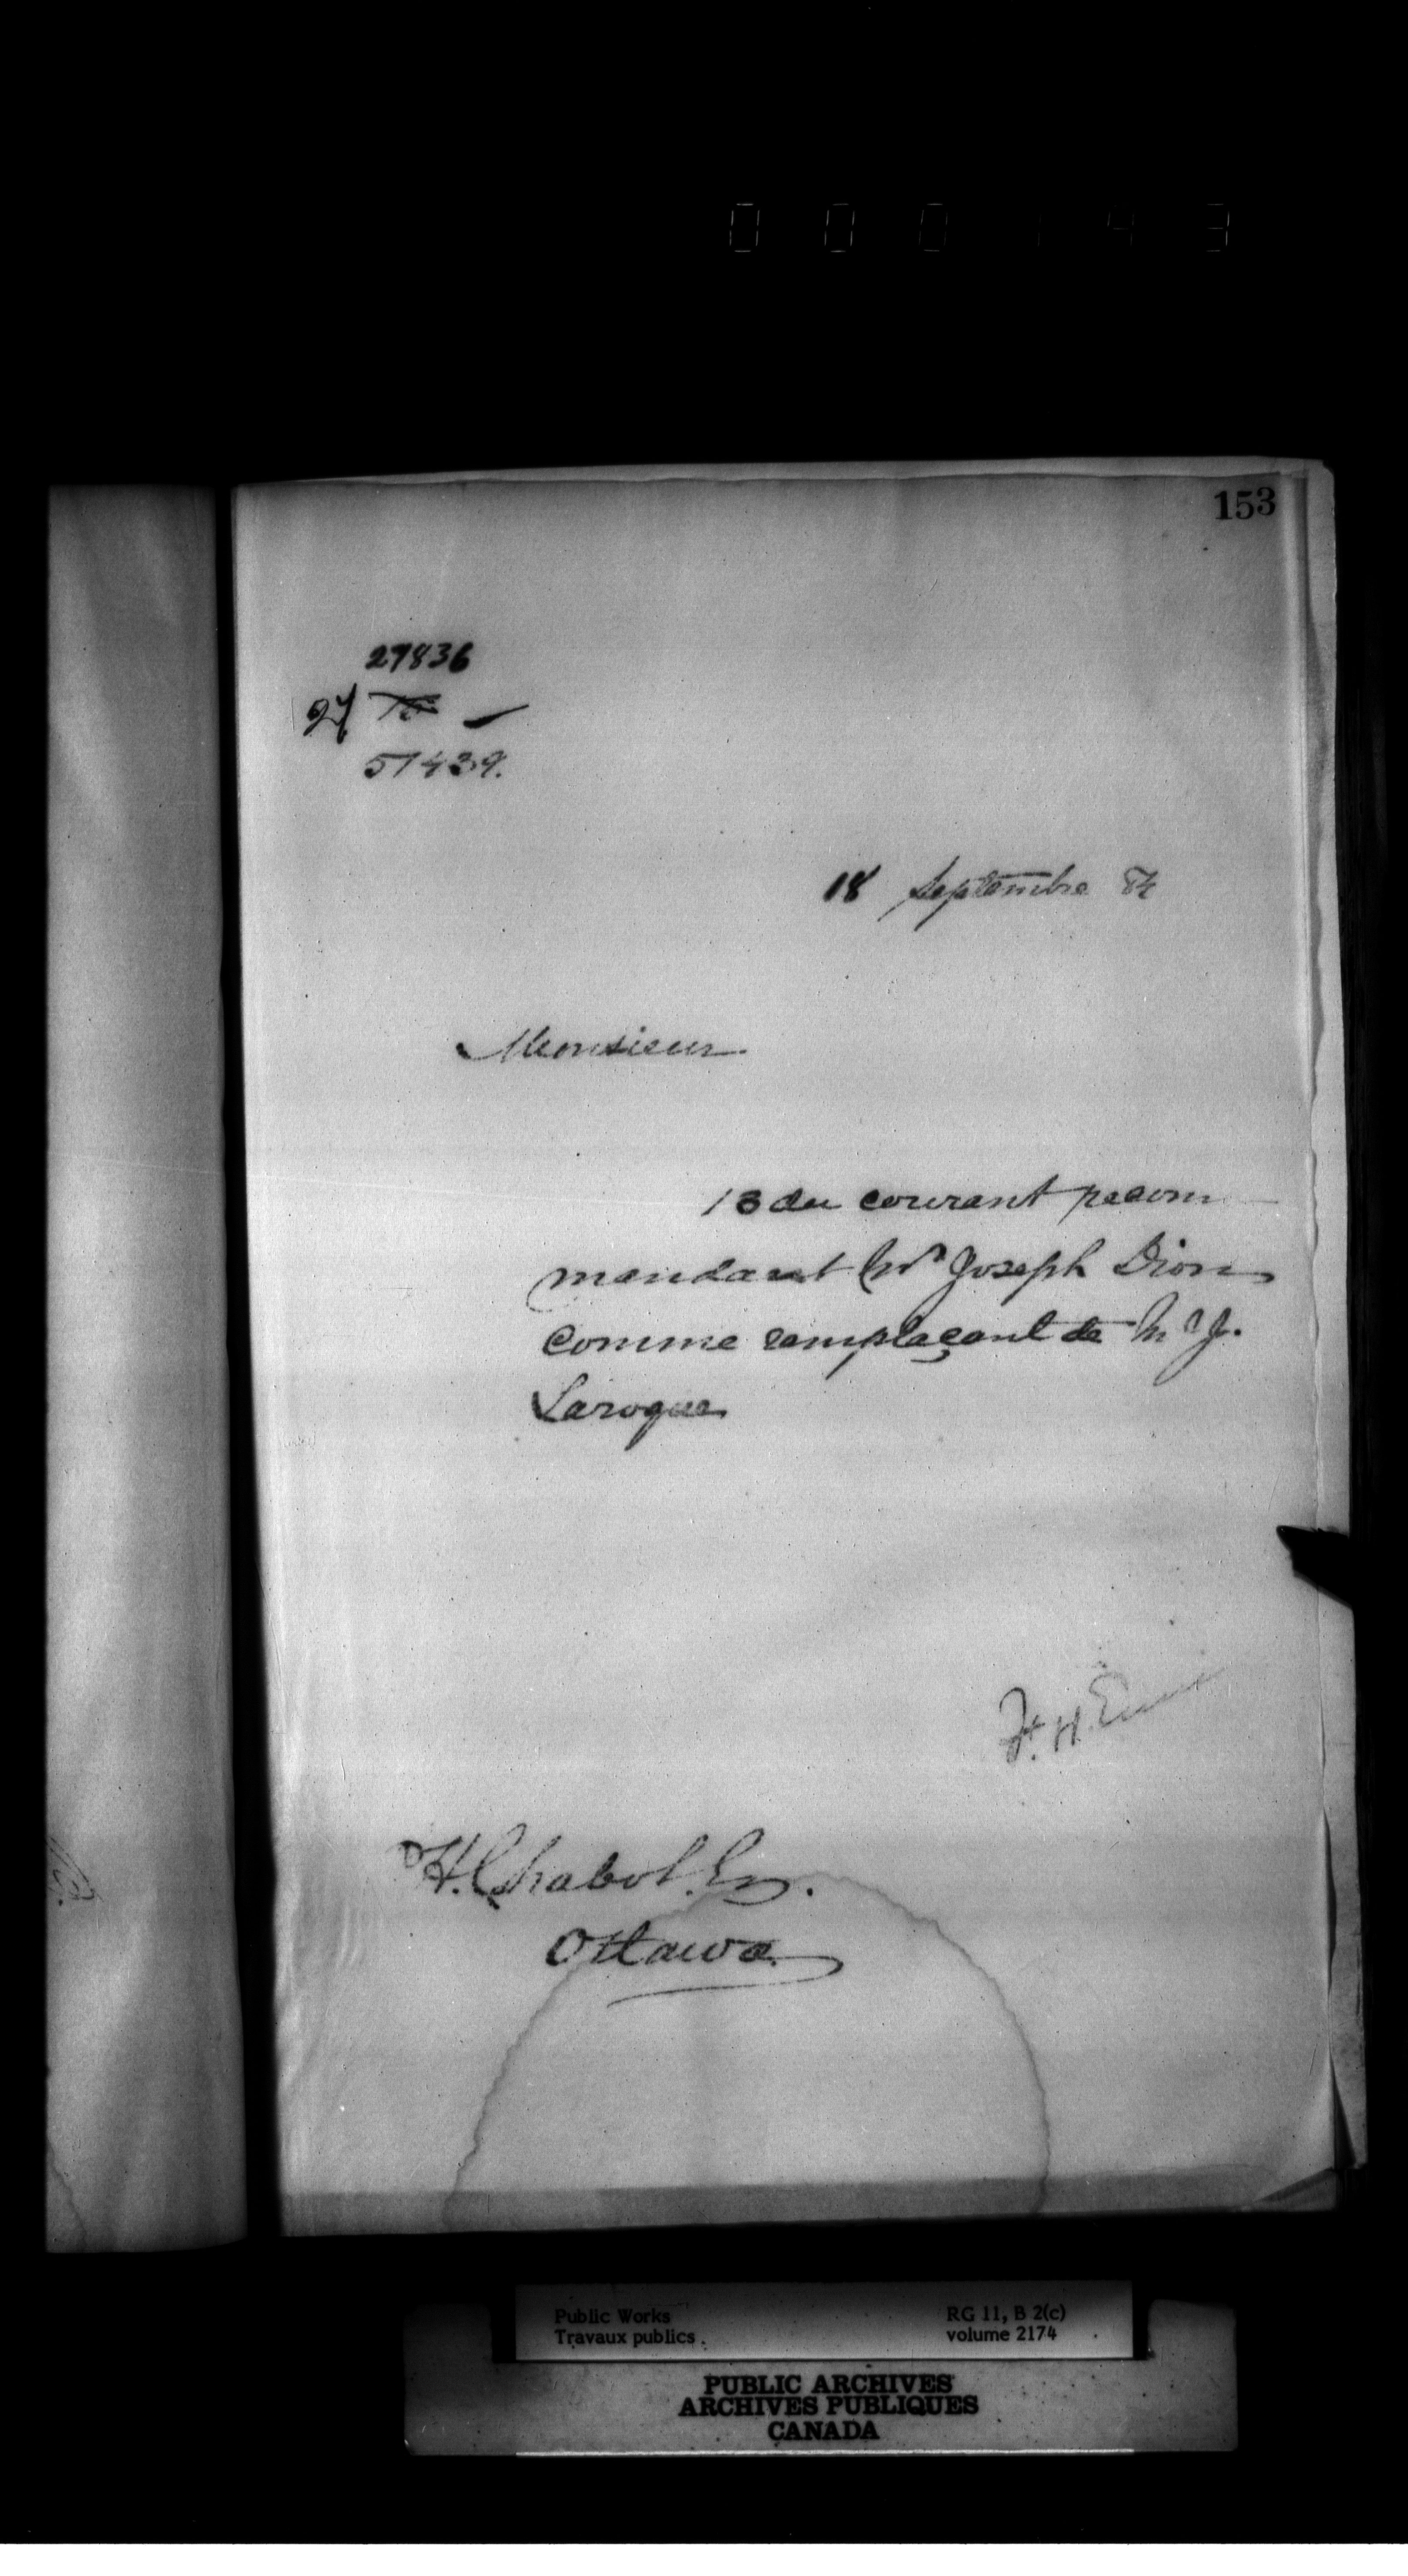 000143
153
27836
51439.
18 Septembre 84
Monsieur.
13 du courant recom
mandant Mr Joseph Dion
comme remplaçant de Mr J.
Laroque
H. Chabot. Esq.
Ottawa.
Public Works
Travaux publics
RG 11, B 2(c)
volume 2174
PUBLIC ARCHIVES
ARCHIVES PUBLIQUES
CANADA